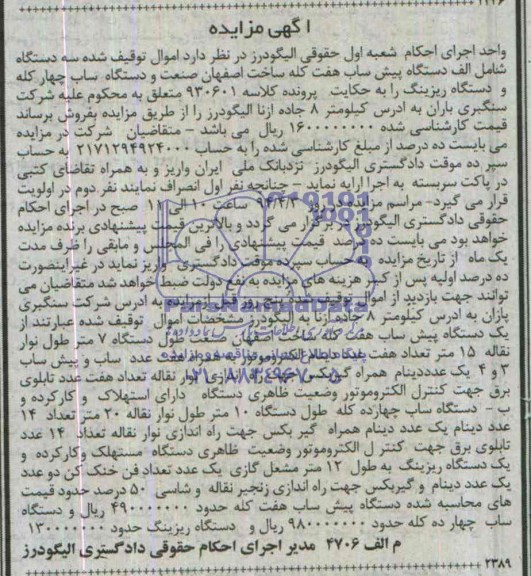 ۱۲۲۶
آگهی مزایده
واحد اجرای احکام شعبه اول حقوقی الیگودرز در نظر دارد اموال توقیف شده سه دستگاه
شامل الف دستگاه پیش ساب هفت کله ساخت اصفهان صنعت و دستگاه ساب چهار کله
و دستگاه ریزینگ را به حکایت پرونده کلاسه ۹۳۰۶۰۱ متعلق به محکوم علیه شرکت
سنگبری یاران به ادرس کیلومتر ۸ جاده ازنا الیگودرز را از طریق مزایده بفروش برساند
قیمت کارشناسی شده ۱۶۰۰۰۰۰۰۰۰ ریال می باشد - متقاضیان شرکت در مزایده
می بایست ده درصد از مبلغ کارشناسی شده را به حساب ۲۱۷۱۲۹۴۹۲۴۰۰۰ به حساب
سپر ده موقت دادگستری الیگودرز نزدبانک ملی ایران واریز و به همراه تقاضای کتبی
در پاکت سربسته به اجرا ارایه نماید – چنانچه نفر اول انصراف نمایند نفر دوم در اولویت
قرار می گیرد- مراسم مزایده ساعت ۱۰ الی ۱۱ صبح در اجرای احکام
حقوقی دادگستری الیگودرز برگزار می گردد و بالاترین قیمت پیشنهادی برنده مزایده
خواهد بود می بایست ده درصد قیمت پیشنهادی را فی المجلس و مابقی را ظرف مدت
یک ماه از تاریخ مزایده به حساب سپرده موقت دادگستری واریز نماید در غیراینصورت
ده درصد اولیه پس از کسر هزینه های مزایده به نفع دولت ضبط خواهد شد متقاضیان می
توانند جهت بازدید از اموال توقیف شده پنج روز قبل از مزایده به ادرس شرکت سنگبری
یاران به ادرس کیلومتر ۸ جاده ازنا به الیگودرز مشخصات اموال توقیف شده عبارتند از
یک دستگاه پیش ساب هفت کله ساخت اصفهان صنعت طول دستگاه ۷ متر طول نوار
نقاله ۱۵ متر تعداد هفت عدد الکتروموتور عدد ساب و پیش ساب
۳ و ۴ یک عدددینام همراه گیربکس جهت راه اندازی نوار نقاله تعداد هفت عدد تابلوی
برق جهت کنترل الکتروموتور وضعیت ظاهری دستگاه دارای استهلاک و کارکرده و
ب - دستگاه ساب چهارده کله طول دستگاه ۱۰ متر طول نوار نقاله ۲۰ متر تعداد ۱۴
عدد دینام یک عدد دینام همراه گیر بکس جهت راه اندازی نوار نقاله تعداد ۱۴ عدد
تابلوی برق جهت کنتر ل الکتروموتور وضعیت ظاهری دستگاه مستهلک وکارکرده و
یک دستگاه ریزینگ به طول ۱۲ متر مشعل گازی یک عدد تعداد فن خنک کن دو عدد
یک عدد دینام و گیربکس جهت راه اندازی زنجیر نقاله و شاسی ۵۰ درصد حدود قیمت
های محاسبه شده دستگاه پیش ساب هفت کله حدود ۴۹۰۰۰۰۰۰۰ ریال و دستگاه
ساب چهار ده کله حدود ۹۸۰۰۰۰۰۰۰ ریال و دستگاه ریزینگ حدود ۱۳۰۰۰۰۰۰۰
م الف ۴۷۰۶ مدیر اجرای احکام حقوقی دادگستری الیگودرز
۲۳۸۹